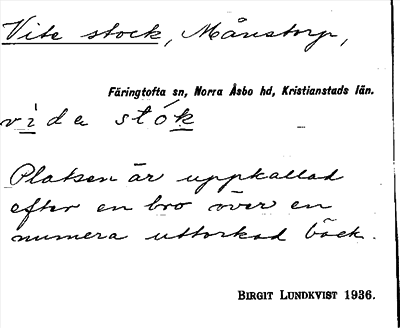 Vite stock, Månstorp,
Färingtofta sn, Norra Åsbo hd, Kristianstads län.
vida stók
Platsen är uppkallad
efter en bro över en
numera uttorkad bäck.
BIRGIT LUNDKVIST 1936.